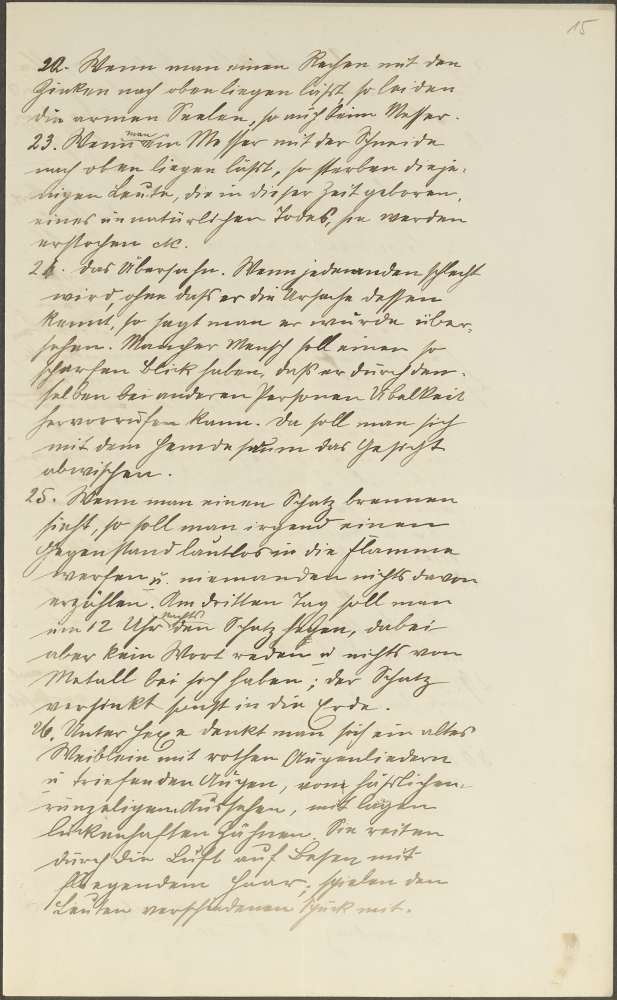 15
22. Wenn man einen Rechen mit den
Zinken nach oben liegen läßt, so leiden
die armen Seelen, so auch beim Messer.
23. Wenn man ein Messer mit der Schneide
nach oben liegen läßt, so sterben dieje-
nigen Leute, die in dieser Zeit geboren,
eines unnatürlichen Todes, sie werden
erstochen etc.
24. Das Übersehn. Wenn jedemanden schlecht
wird, ohne daß er die Ursache dessen
kennt, so sagt man er wurde über-
sehen. Mancher Mensch soll einen so
scharfen Blick haben, daß er durch den-
selben bei anderen Personen Übelkeit
hervorrufen kann. Da soll man sich
mit dem Hemdesaum das Gesicht
abwischen.
25. Wenn man einen Schatz brennen
sieht, so soll man irgend einen
Gegenstand lautlos in die Flamme
werfen u. niemanden nichts davon
erzählen. Am dritten Tag soll man
um 12 Uhr nachts den Schatz heben, dabei
aber kein Wort reden u nichts von
Metall bei sich haben; der Schatz
versinkt sonst in die Erde.
26. Unter Hexe denkt man sich ein altes
Weiblein mit rothen Augenliedern
u triefenden Augen, vom häßlichen-
runzeligen Aussehen, mit langen
lückenhaften Zähnen. Sie reiten
durch die Luft auf Besen mit
fliegendem Haar, spielen den
Leuten verschiedenen Spuck mit.